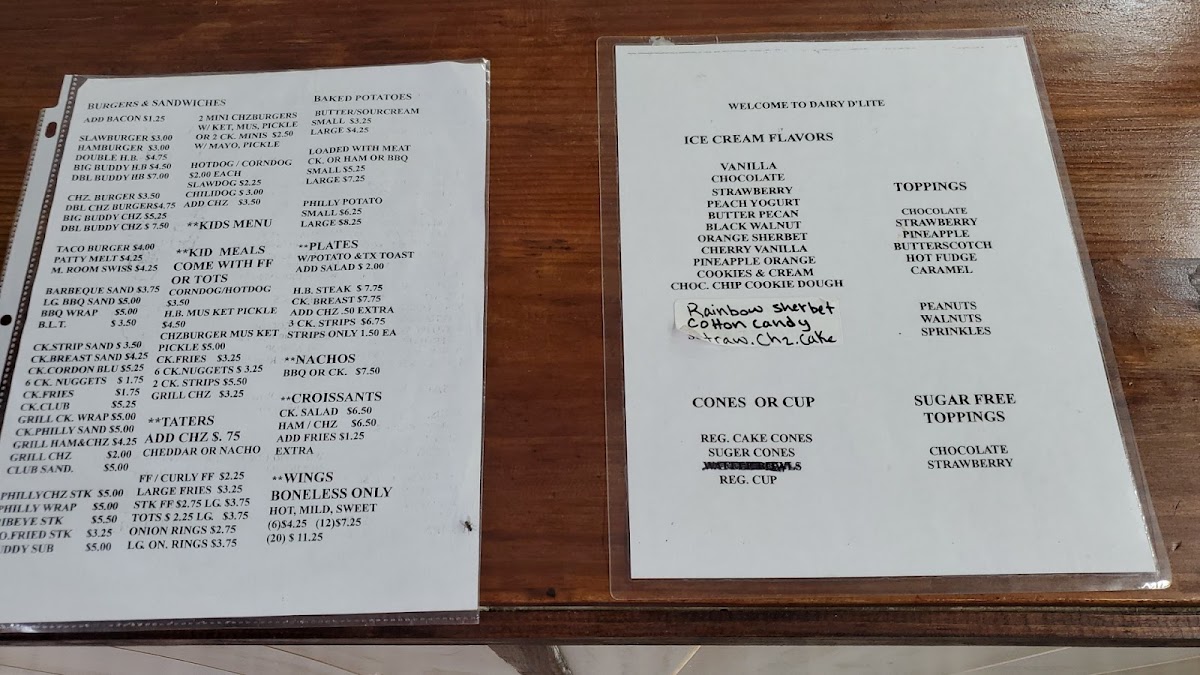 BURGERS & SANDWICHES
ADD BACON $1.25
SLAWBURGER $3.00
HAMBURGER $3.00
DOUBLE H.B. $4.75
BIG BUDDY H.B $4.50
DBL BUDDY HB $7.00
CHZ. BURGER $3.50
DBL CHZ BURGER$4.75
BIG BUDDY CHZ $5.25
DBL BUDDY CHZ $ 7.50
TACO BURGER $4.00
PATTY MELT $4.25
M. ROOM SWISS $4.25
BARBEQUE SAND $3.75
LG. BBQ SAND $5.00
BBQ WRAP $5.00
B.L.T. $ 3.50
CK.STRIP SAND $ 3.50
CK.BREAST SAND $4.25
CK.CORDON BLU $5.25
6 CK. NUGGETS $ 1.75
CK.FRIES $1.75
CK.CLUB $5.25
GRILL CK. WRAP $5.00
CK.PHILLY SAND $5.00
GRILL HAM&CHZ $4.25
GRILL CHZ $2.00
CLUB SAND. $5.00
PHILLYCHZ STK $5.00
PHILLY WRAP $5.00
IBEYE STK $5.50
O.FRIED STK $3.25
UDDY SUB $5.00
2 MINI CHZBURGERS
W/ KET, MUS, PICKLE
OR 2 CK. MINIS $2.50
W/ MAYO, PICKLE
HOTDOG / CORNDOG
$2.00 EACH
SLAWDOG $2.25
CHILIDOG $ 3.00
ADD CHZ $3.50
**KIDS MENU
**KID MEALS
COME WITH FF
OR TOTS
CORNDOG/HOTDOG
$3.50
H.B. MUS KET PICKLE
$4.50
CHZBURGER MUS KET
PICKLE $5.00
CK.FRIES $3.25
6 CK.NUGGETS $ 3.25
2 CK. STRIPS $5.50
GRILL CHZ $3.25
**TATERS
ADD CHZ $. 75
CHEDDAR OR NACHO
FF / CURLY FF $2.25
LARGE FRIES $3.25
STK FF $2.75 LG. $3.75
TOTS $ 2.25 LG. $3.75
ONION RINGS $2.75
LG. ON. RINGS $3.75
BAKED POTATOES
BUTTER/SOURCREAM
SMALL $3.25
LARGE $4.25
LOADED WITH MEAT
CK. OR HAM OR BBQ
SMALL $5.25
LARGE $7.25
PHILLY POTATO
SMALL $6.25
LARGE $8.25
**PLATES
W/POTATO &TX TOAST
ADD SALAD $ 2.00
H.B. STEAK $ 7.75
CK. BREAST $7.75
ADD CHZ .50 EXTRA
3 CK. STRIPS $6.75
STRIPS ONLY 1.50 EA
**NACHOS
BBQ OR CK. $7.50
**CROISSANTS
CK. SALAD $6.50
HAM / CHZ $6.50
ADD FRIES $1.25
EXTRA
**WINGS
BONELESS ONLY
HOT, MILD, SWEET
(6)$4.25 (12)$7.25
(20) $ 11.25
WELCOME TO DAIRY D'LITE
ICE CREAM FLAVORS
VANILLA
CHOCOLATE
STRAWBERRY
PEACH YOGURT
BUTTER PECAN
BLACK WALNUT
ORANGE SHERBET
CHERRY VANILLA
PINEAPPLE ORANGE
COOKIES & CREAM
CHOC. CHIP COOKIE DOUGH
Rainbow sherbet
Cotton candy
straw. Chz. Cake
TOPPINGS
CHOCOLATE
STRAWBERRY
PINEAPPLE
BUTTERSCOTCH
HOT FUDGE
CARAMEL
PEANUTS
WALNUTS
SPRINKLES
CONES OR CUP
REG. CAKE CONES
SUGER CONES
REG. CUP
SUGAR FREE
TOPPINGS
CHOCOLATE
STRAWBERRY